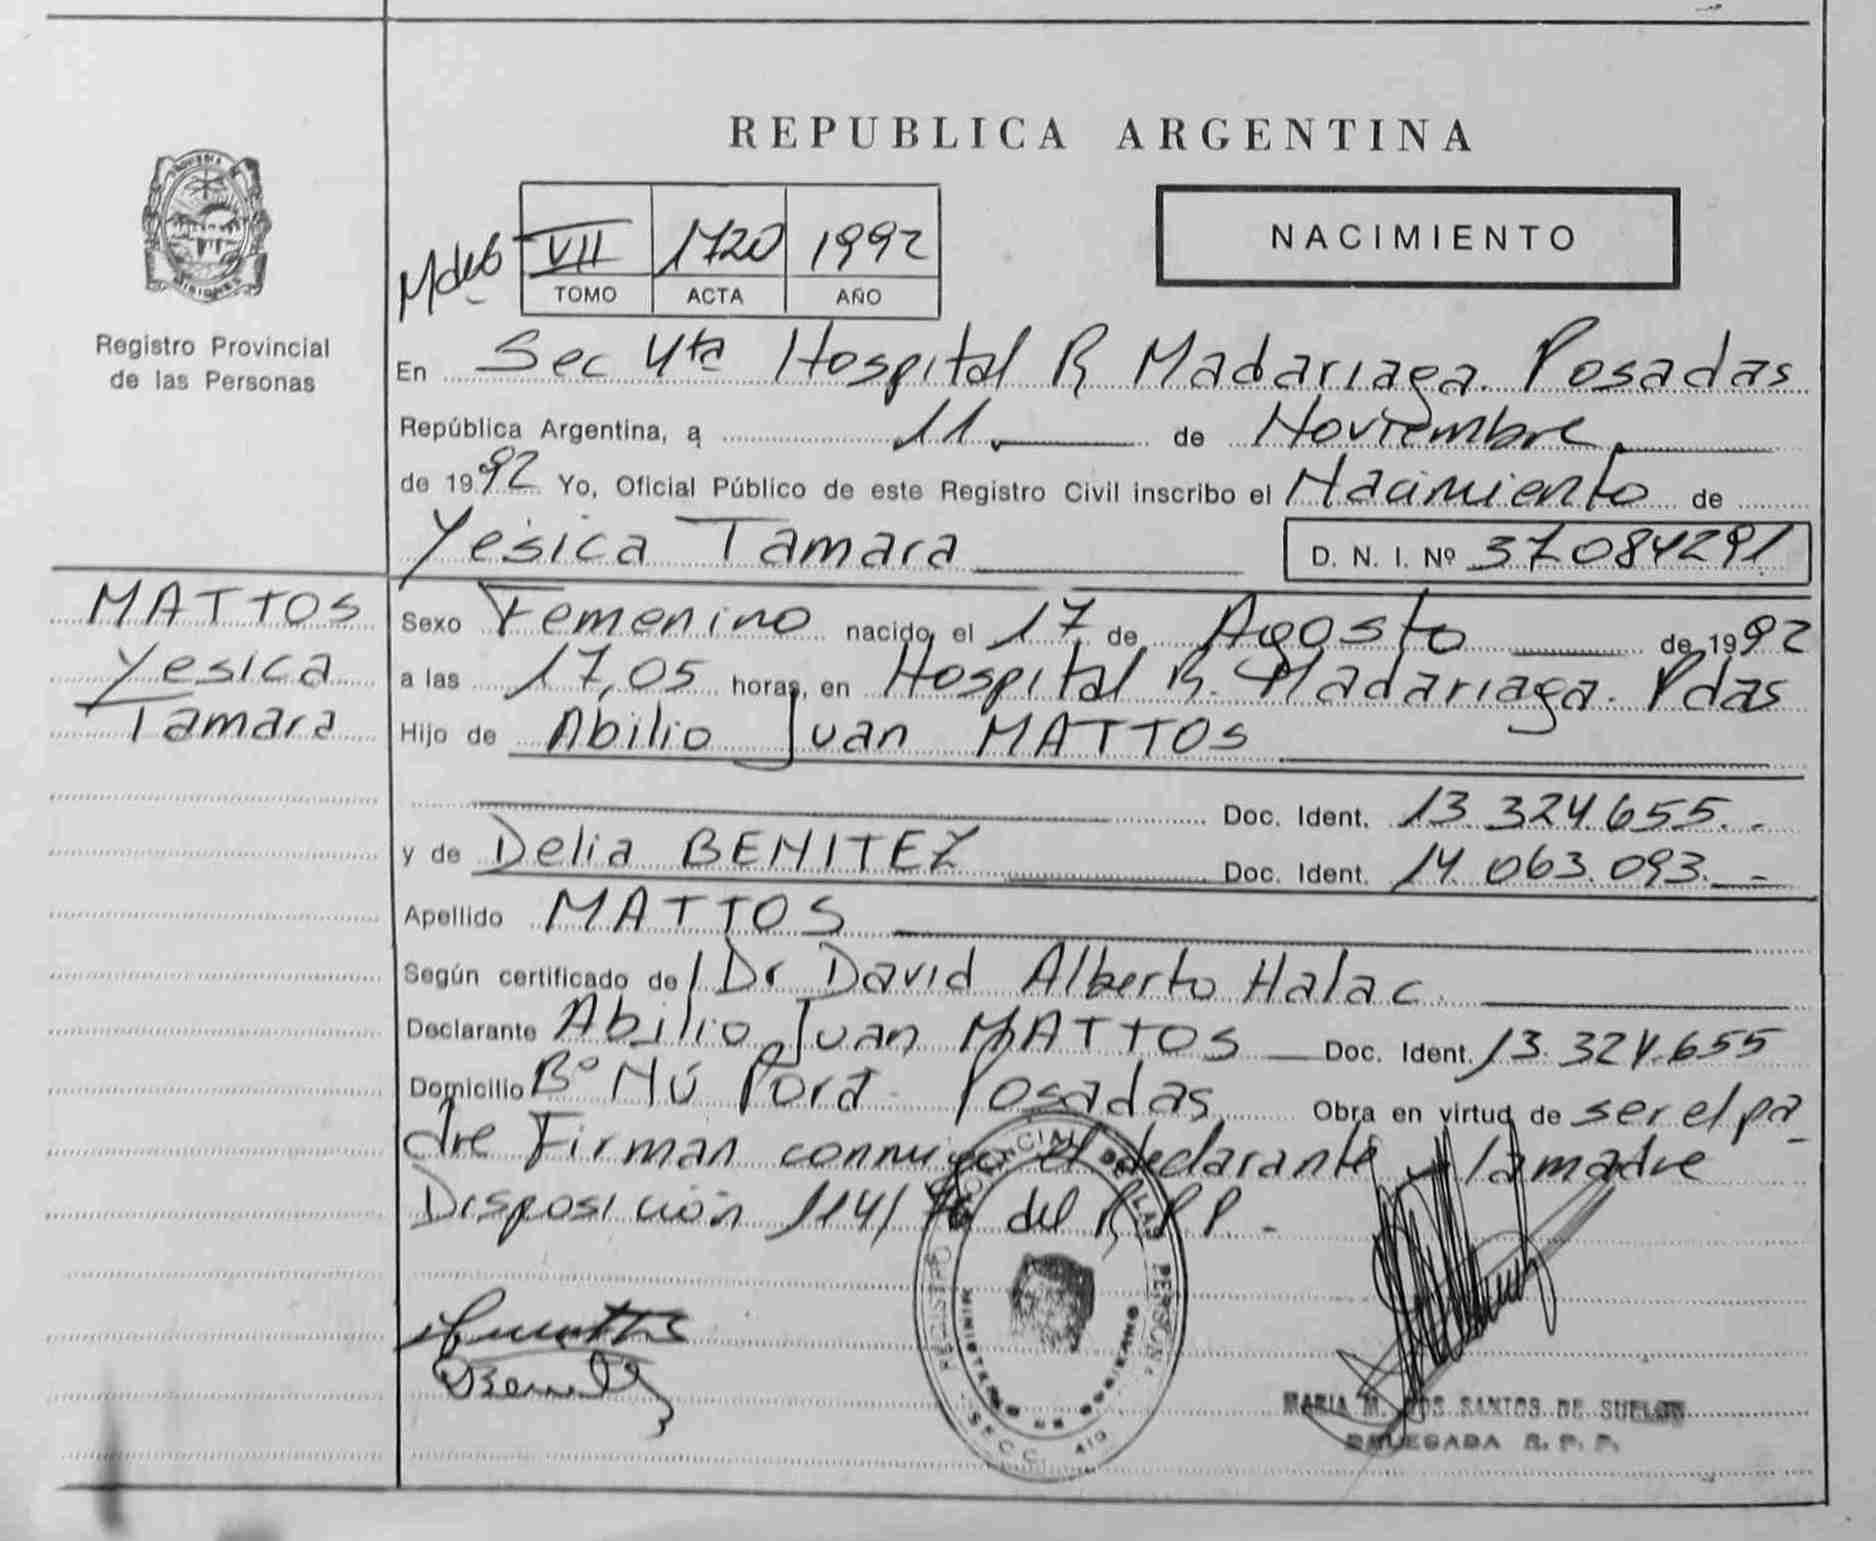 REPUBLICA ARGENTINA
PROVINCIA
MISIONES
Registro Provincial
de las Personas
VII 1720 1992
TOMO ACTA AÑO
NACIMIENTO
En Sec 4ta Hospital R Madariaga. Posadas
República Argentina, a 11. de Noviembre
de 1992 Yo, Oficial Público de este Registro Civil inscribo el Nacimiento de
Yesica Tamara D. N. I. Nº 37084291
MATTOS
Yesica
Tamara
Sexo Femenino nacido el 17 de Agosto de 1992
a las 17,05 horas, en Hospital R. Madariaga. Pdas
Hijo de Abilio Juan MATTOS
Doc. Ident. 13.324.655.-
y de Delia BENITEZ Doc. Ident. 14.063.093.-
Apellido MATTOS
Según certificado de Dr David Alberto Halac
Declarante Abilio Juan MATTOS Doc. Ident. 13.324.655
Domicilio Bº Ñú Porá. Posadas Obra en virtud de ser el pa-
dre Firman conmigo el declarante y la madre
Disposición 114/ del R.P.P.-
REGISTRO PROVINCIAL DE LAS PERSONAS
MINISTERIO DE GOBIERNO
SECC. 4ta
MARIA M. DOS SANTOS DE SUELOS
DELEGADA R. P. P.